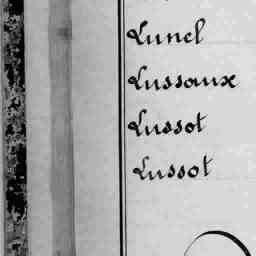 Lunel
Lussaux
Lussot
Lussot